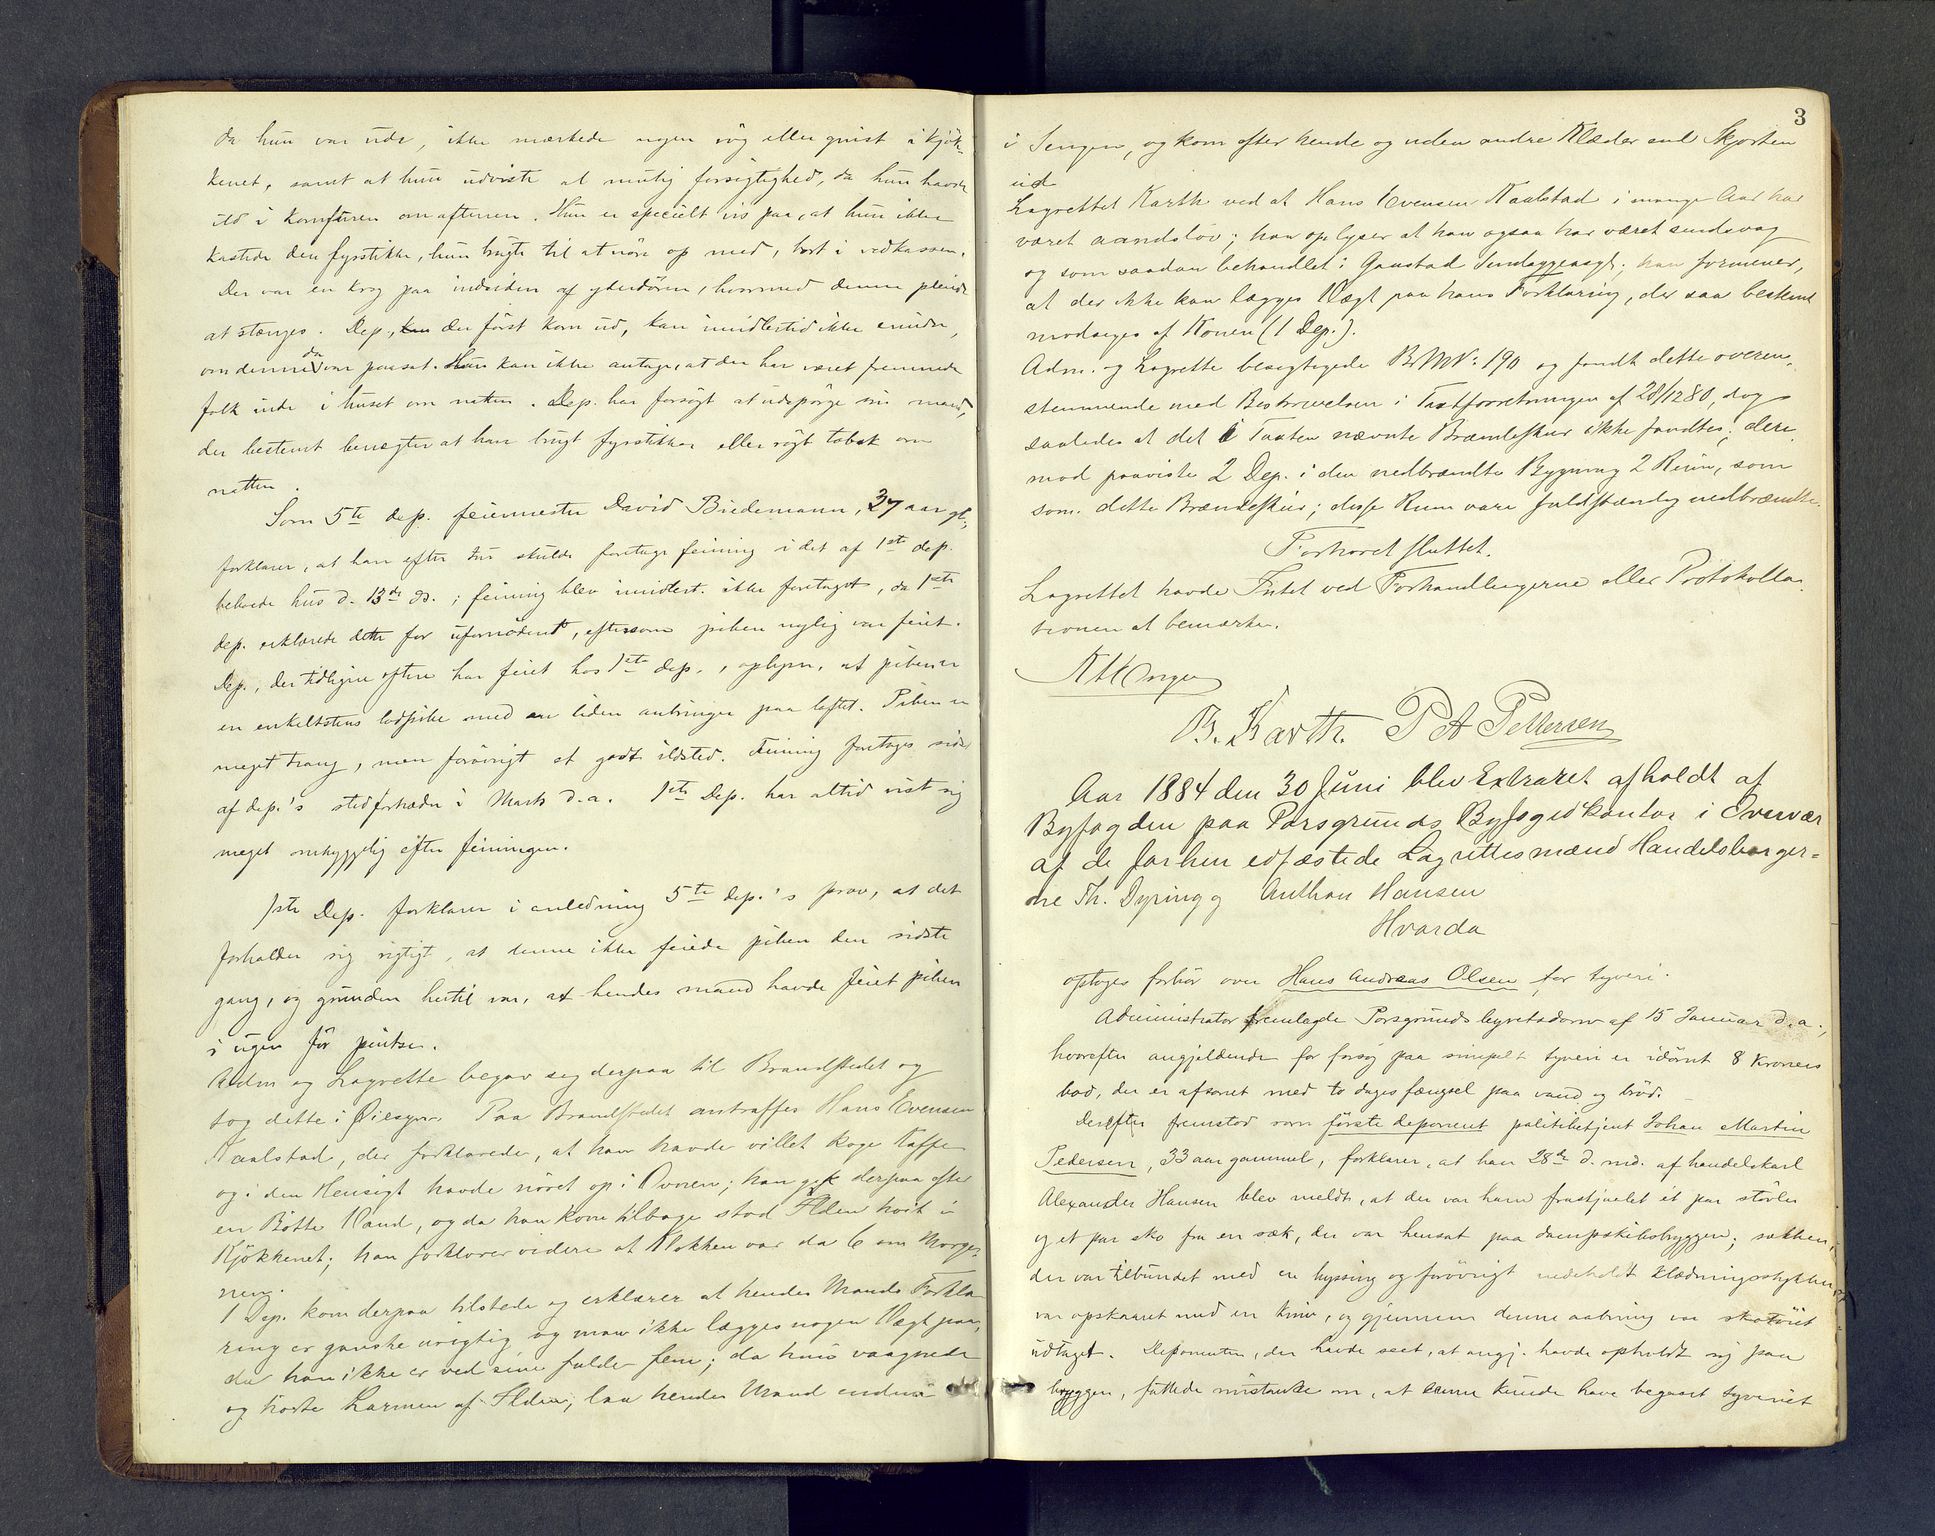 da hun var ude, ikke mærkede nogen røg eller gnist i kjøk-
kenet, samt at hun udviste al mulig forsigtighed, da hun havde
ild i komfuren om aftenen. Hun er specielt vis paa, at hun ikke
kastede den fyrstikke, hun brugte til at nøre op med, bort i vedkassen.
Der var en krog paa indsiden af yderdøren, hvormed denne pleiede
at stænges. Dep., der først kom ud, kan imidlertid ikke erindre,
om denne da var paasat. Hun kan ikke antage, at der har været fremmede
folk inde i huset om natten. Dep. har forsøgt at udspørge sin mand,
der bestemt benegter at have brugt fyrstikker eller røgt tobak om
natten.
Som 5te dep. feiermester David Biedemann, 37 aar gl.,
forklarer, at han efter tur skulde foretage feining i det af 1ste dep.
beboede hus d. 13de ds.; feining blev imidlert. ikke foretaget, da 1ste
dep. erklærede dette for ufornødent, eftersom piben nylig var feiet.
Dep., der tidligere oftere har feiet hos 1ste dep., oplyser, at piben er
en enkeltstens lodpibe med en liden anbringer paa loftet. Piben er
meget trang, men forøvrigt et godt ildsted. Feining foretoges sidst
af dep.'s stedfortræder i Marts d.a. 1ste Dep. har altid vist sig
meget omhyggelig efter feiningen.
1ste Dep. forklarer i anledning 5te dep.'s prov, at det
forholder sig rigtigt, at denne ikke feiede piben den sidste
gang, og grunden hertil var, at hendes mand havde feiet piben
i ugen før pintse.
Adm og Lagrette begav sig derpaa til Brandstedet og
tog dette i Øiesyn. Paa Brandstedet antraffes Hans Evensen
Kaalstad, der forklarede, at han havde villet koge Kaffe
og i den Hensigt havde nøret op i Ovnen; han gik derpaa efter
en Bøtte Vand, og da han kom tilbage stod Ilden høit i
Kjøkkenet; han forklarer videre at Klokken var da 6 om Morge-
nen.
1 Dep. kom derpaa tilstede og erklærer at hendes Mands Forkla-
ring er ganske urigtig og man ikke lægges nogen Vægt paa,
da han ikke er ved sine fulde fem; da hun vaagnede
og hørte Larmen af Ilden, laa hendes Mand endnu
3
i Sengen, og kom efter hende og uden andre Klæder end Skjorten
ud
Lagrettet Karth ved at Hans Evensen Kaalstad i mange Aar har
været aandsløv; han oplyser at han ogsaa har været sindsvag
og som saadan behandlet i Gaustad Sindsygeasyl; han formener,
at der ikke kan lægges Vægt paa hans Forklaring, der saa bestemt
modsiges af Konen (1 Dep.).
Adm. og Lagrette besigtigede B M N: 190 og fandt dette overen-
stemmende med Beskrivelsen i Taxtforretningen af 28/12 80, dog
saaledes at det i Taxten nævnte Brændeskur ikke fandtes; deri-
mod paaviste 2 Dep. i den nedbrændte Bygning 2 Rum, som
som dette Brændeskur; disse Rum vare fuldstændig nedbrændte.
Forhøret sluttet.
Lagrettet havde Intet ved Forhandlingerne eller Protokolla-
tionen at bemærke.
B. Karth. P A Pettersen
Aar 1884 den 30 Juni blev Extraret afholdt af
Byfogden paa Porsgrunds Byfogedkontor i Overvær
af de forhen edfæstede Lagrettesmænd Handelsborger-
ne Th. Dyring og Anthon Hansen
Hvorda
optoges forhør over Hans Andreas Olsen for tyveri.
Administrator fremlagde Porsgrunds byretsdom af 15 Januar d.a.,
hvorefter angjeldende for forsøg paa simpelt tyveri er idømt 8 kroners
bod, der er afsonet med to dages fængsel paa vand og brød.
Derefter fremstod som første deponent politibetjent Johan Martin
Pedersen, 33 aar gammel, forklarer, at han 28de d. md. af handelskarl
Alexander Hansen blev meldt, at der var ham frastjaalet et par støvler
og et par sko fra en sæk, der var hensat paa dampskibsbryggen; sækken,
der var tilbundet med en hyssing og forøvrigt indeholdt klædningsstykker,
var opskaaret med en kniv, og gjennem denne aabning var skotøiet
udtaget. Deponenten, der havde seet, at angj. havde opholdt sig paa
bryggen, fattede mistanke om, at denne kunde have begaaet tyveriet